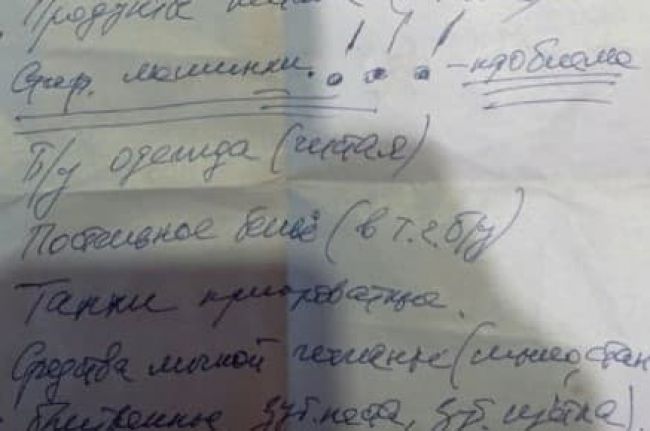 Продукты
Стир. машинки. !!! – проблема
Б/у одежда (чистая)
Постельное бельё (в т.ч. б/у)
Тапки прикроватные.
Средства личной гигиены (мыло,
зуб. паста, зуб. щётка).